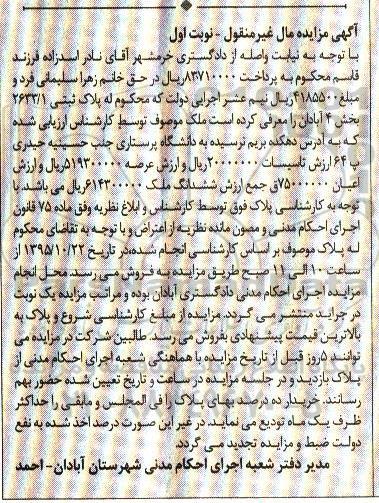 آگهی مزایده مال غیرمنقول - نوبت اول
با توجه به نیابت واصله از دادگستری خرمشهر آقای نادر اسدزاده فرزند
قاسم محکوم به پرداخت ۸۳۷۱۰۰۰۰ریال در حق خانم زهرا سلیمانی فرد و
مبلغ۴۱۸۵۵۰۰ریال نیم عشر اجرایی دولت که محکوم له پلاک ثبتی ۲۶۳۳/۱
بخش ۴ آبادان را معرفی کرده است ملک موصوف توسط کارشناس ارزیابی شده
که به آدرس دهکده بریم نرسیده به دانشگاه پرستاری جنب حسینیه حیدری
پ ۶۴ ارزش تاسیسات ۲۰۰۰۰۰۰۰ریال و ارزش عرصه ۵۱۹۳۰۰۰۰۰ریال و ارزش
اعیان ۷۵۰۰۰۰۰۰ق جمع ارزش ششدانگ ملک ۶۱۴۳۰۰۰۰۰ریال می باشد با
توجه به کارشناسی پلاک فوق توسط کارشناس و ابلاغ نظریه وفق ماده ۷۵ قانون
اجرای احکام مدنی و مصون مانده نظریه از اعتراض و با توجه به تقاضای محکوم
له پلاک موصوف بر اساس کارشناسی انجام شده،در تاریخ ۱۳۹۵/۱۰/۲۲ از
ساعت ۱۰ الی ۱۱ صبح طریق مزایده به فروش می رسد. محل انجام
مزایده اجرای احکام مدنی دادگستری آبادان بوده و مراتب مزایده یک نوبت
در جراید منتشر می گردد. مزایده از مبلغ کارشناسی شروع و پلاک به
بالاترین قیمت پیشنهادی بفروش می رسد. طالبین شرکت در مزایده می
توانند ۵روز قبل از تاریخ مزایده با هماهنگی شعبه اجرای احکام مدنی از
پلاک بازدید و در جلسه مزایده در ساعت و تاریخ تعیین شده حضور بهم
رسانند. خریدار ده درصد بهای پلاک را فی المجلس و مابقی را حداکثر
ظرف یک ماه تودیع می نماید. در غیر این صورت درصد اخذ شده به نفع
دولت ضبط و مزایده تجدید می گردد.
مدیر دفتر شعبه اجرای احکام مدنی شهرستان آبادان- احمد